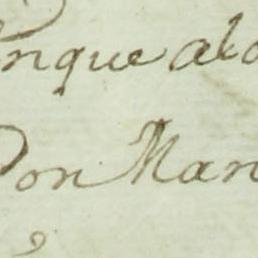 nque al
Don Man